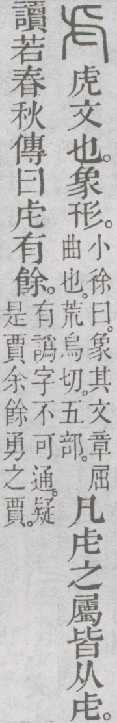 虍 虎文也。象形。小徐曰。象其文章屈
曲也。荒烏切。五部。凡虍之屬皆从虍。
讀若春秋傳曰虍有餘。有譌字不可通。疑
是賈余餘勇之賈。